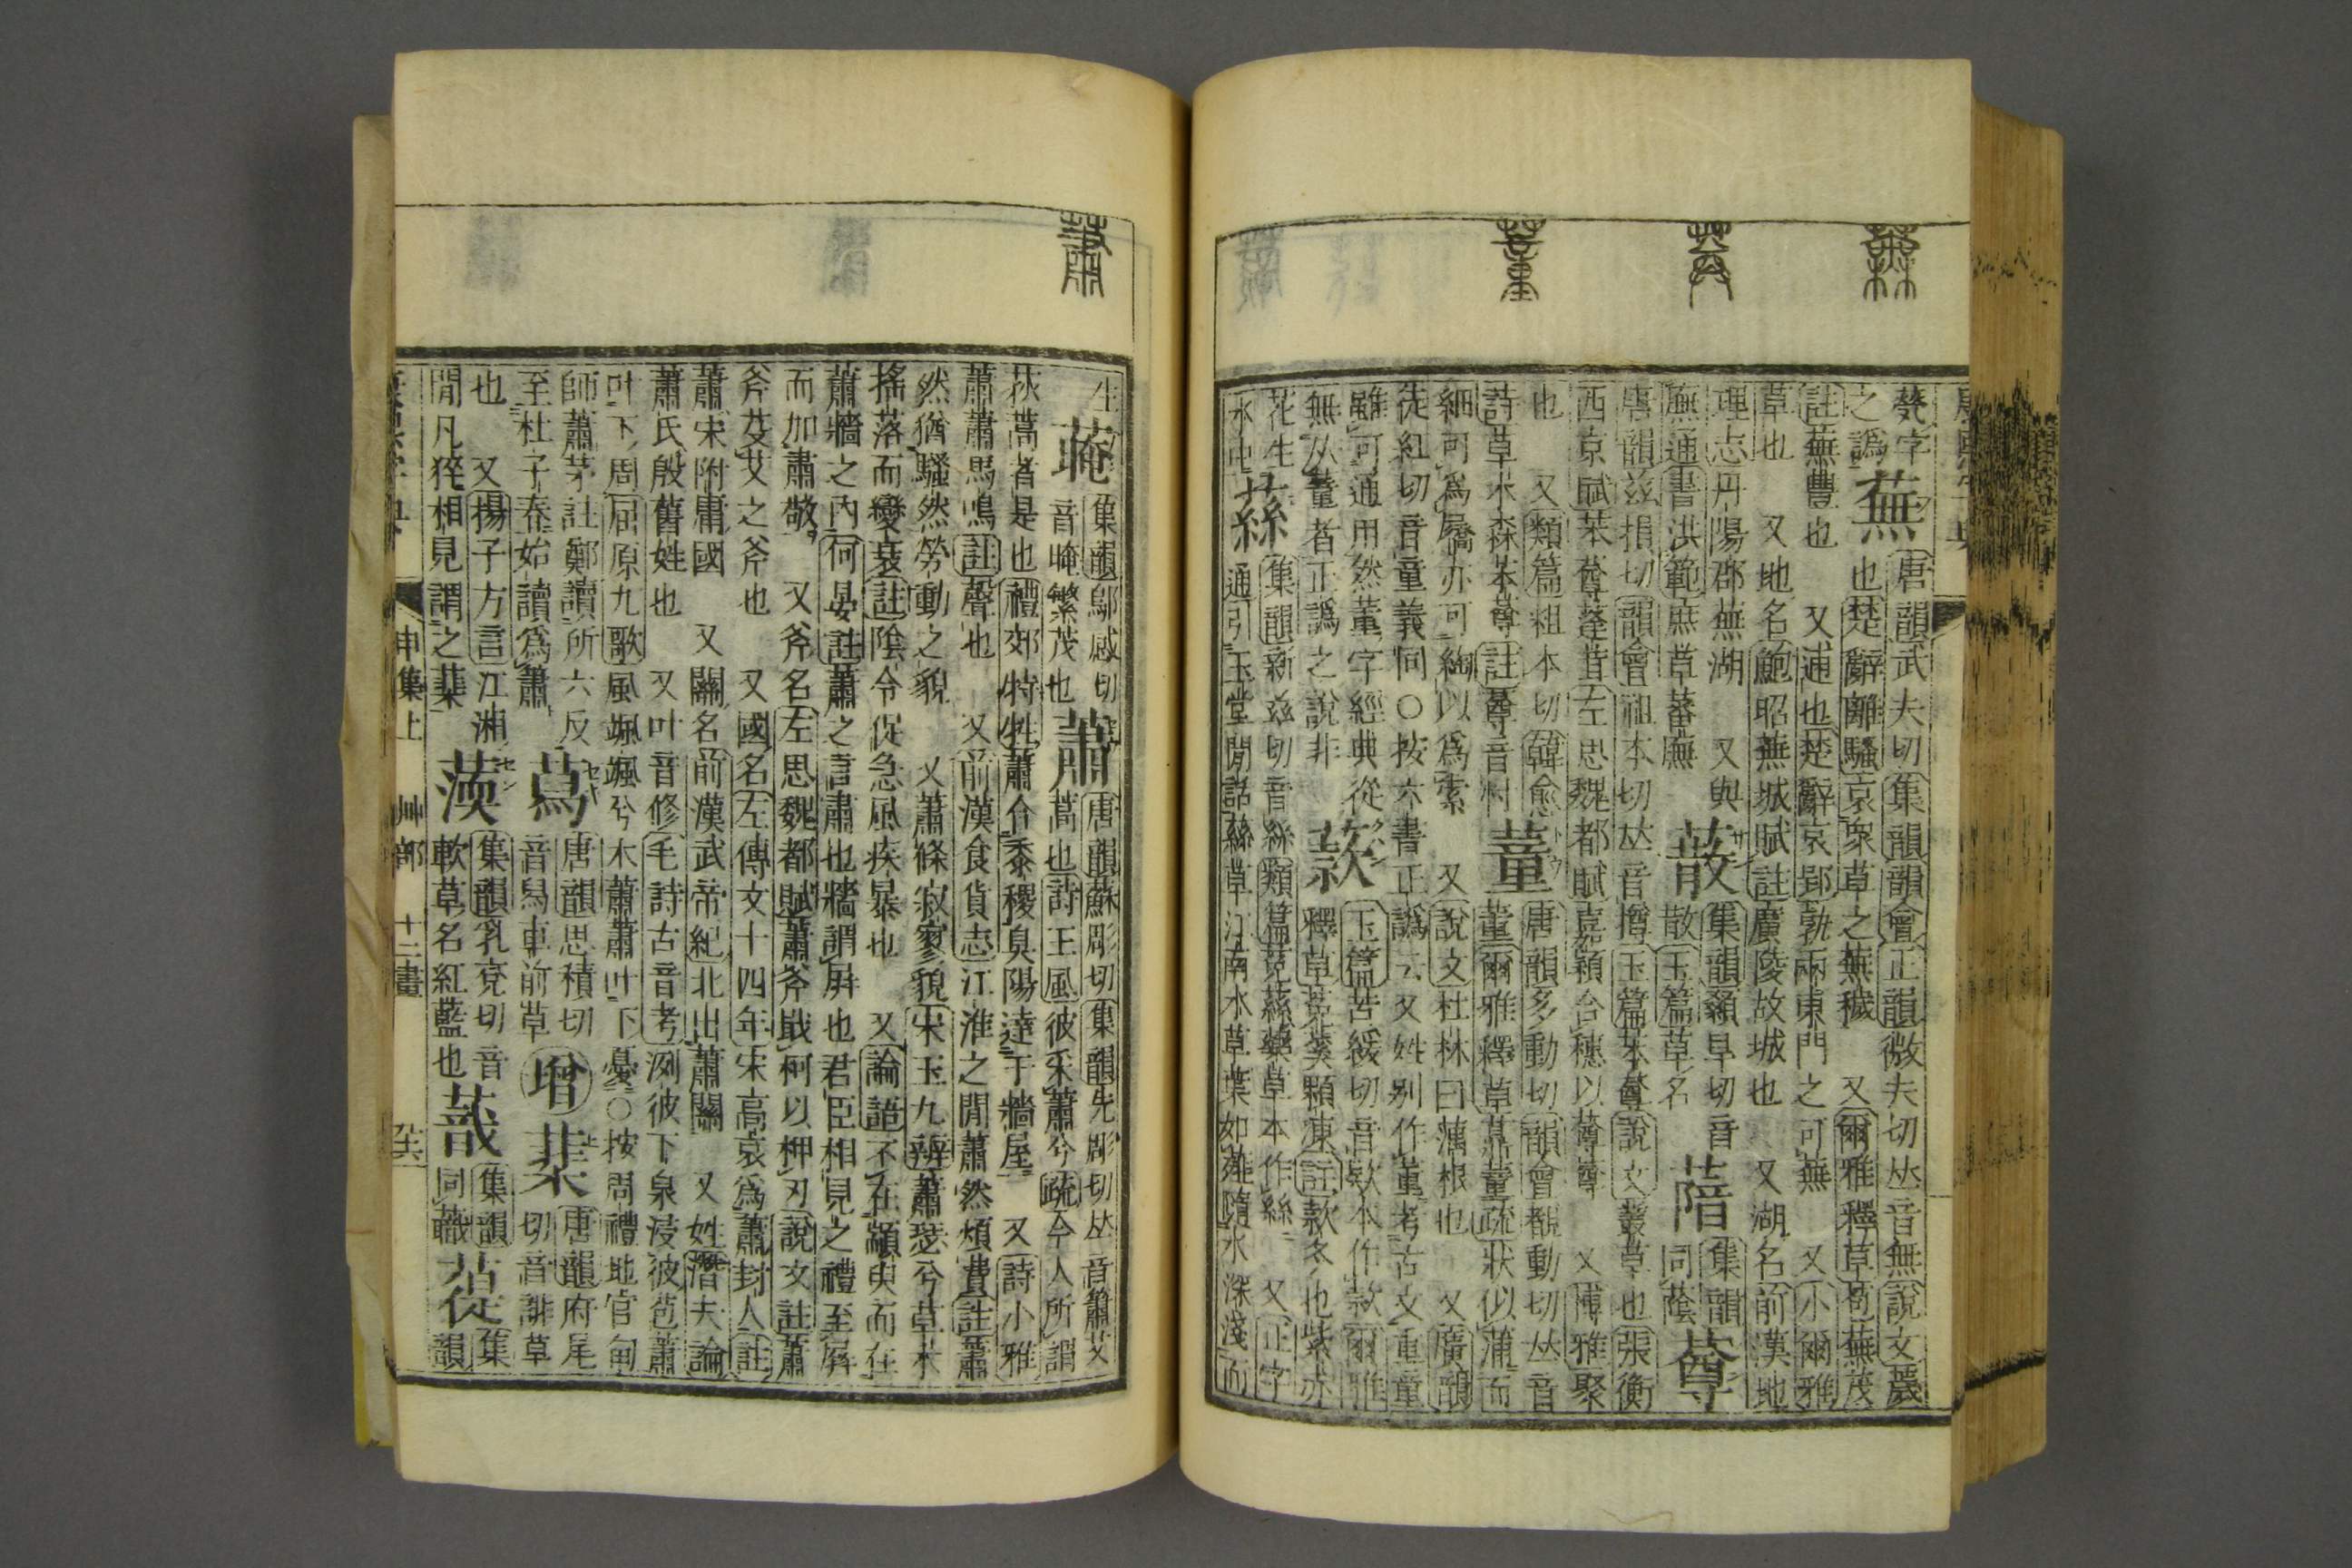 甤字
之譌
蕪
唐韻武夫切集韻韻會正韻微夫切𠀤音無說文薉
也楚辭離騷哀衆草之蕪穢 又爾雅釋草苞蕪茂
註蕪豐也 又逋也楚辭哀郢孰兩東門之可蕪 又小爾雅
草也 又地名鮑昭蕪城賦註廣陵故城也 又湖名前漢地
理志丹陽郡蕪湖 又與
廡通書洪範庶草蕃廡
蔒
集韻顙旱切音
散玉篇草名
蔭
集韻
同蔭
蕁
唐韻兹損切韻會祖本切𠀤音撙玉篇苯䔿說文叢草也張衡
西京賦苯䔿蓬茸左思魏都賦嘉穎合穗以䔿䔿 又博雅聚
也 又類篇粗本切韓愈
詩草木森苯䔿註䔿音忖
董
唐韻多動切韻會覩動切𠀤音
董爾雅釋草蘱薡蕫疏狀似蒲而
細可爲屩亦可綯以爲索 又說文杜林曰藕根也 又廣韻
徒紅切音童義同○按六書正譌云又姓别作董考古文重童
雖可通用然董字經典從
無从董者正譌之說非
蒤
玉篇苦緩切音欵本作款爾雅
釋草菟奚顆凍註款冬也紫赤
花生
水中
蕬
集韻新兹切音絲類篇菟蕬藥草本作絲 又正字
通引玉堂閒話蕬草江南水草葉如薤隨水深淺而
生
䕃
集韻鄔感切
音晻繁茂也
蕭
唐韻蘇彫切集韻先彫切𠀤音簫艾
蒿也詩王風彼采蕭兮疏今人所謂
荻蒿者是也禮郊特牲蕭合黍稷臭陽達于牆屋 又詩小雅
蕭蕭馬鳴註聲也 又前漢食貨志江淮之閒蕭然煩費註蕭
然猶騷然勞動之貌 又蕭條寂寥貌宋玉九辯蕭瑟兮草木
搖落而變衰註陰令促急風疾暴也 又論語不在顓臾而在
蕭牆之內何晏註蕭之言肅也牆謂屏也君臣相見之禮至屏
而加肅敬 又斧名左思魏都賦蕭斧戢柯以柙刃說文註蕭
斧芟艾之斧也 又國名左傳文十四年宋高哀爲蕭封人註
蕭宋附庸國 又關名前漢武帝紀北出蕭關 又姓潛夫論
蕭氏殷舊姓也 又叶音修毛詩古音考洌彼下泉浸彼苞蕭
叶下周屈原九歌風颯颯兮木蕭蕭叶下憂○按周禮地官甸
師蕭茅註鄭讀所六反
至杜子春始讀爲蕭
蕮
唐韻思積切
音舄車前草
增
菐
唐韻府尾
切音誹草
也 又揚子方言江湘
閒凡猝相見謂之菐
蝡
集韻乳兗切音
輭草名紅藍也
蕺
集韻
同蕺
蓰
集
韻
康熙字典
申集上 艸部 十二畫